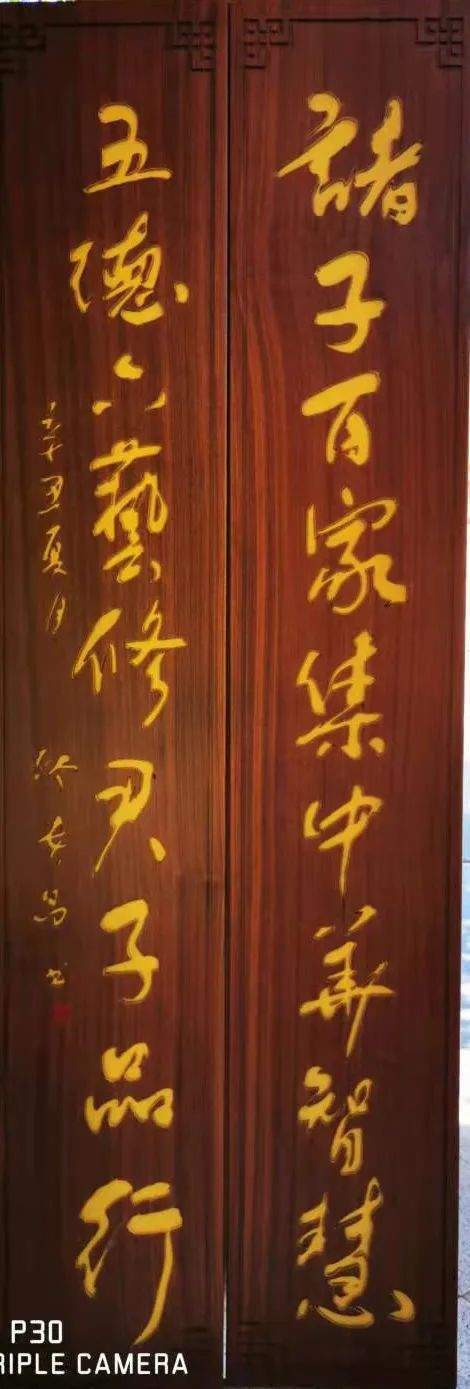 諸子百家集中華智慧
五德六藝修君子品行
辛丑夏月
書
P30
RIPLE CAMERA